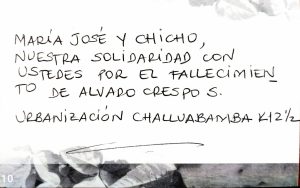 MARÍA JOSÉ Y CHICHO,
NUESTRA SOLIDARIDAD CON
USTEDES POR EL FALLECIMIEN
TO DE ALVADO CRESPO S.
URBANIZACIÓN CHALLUABAMBA K12 1/2
10